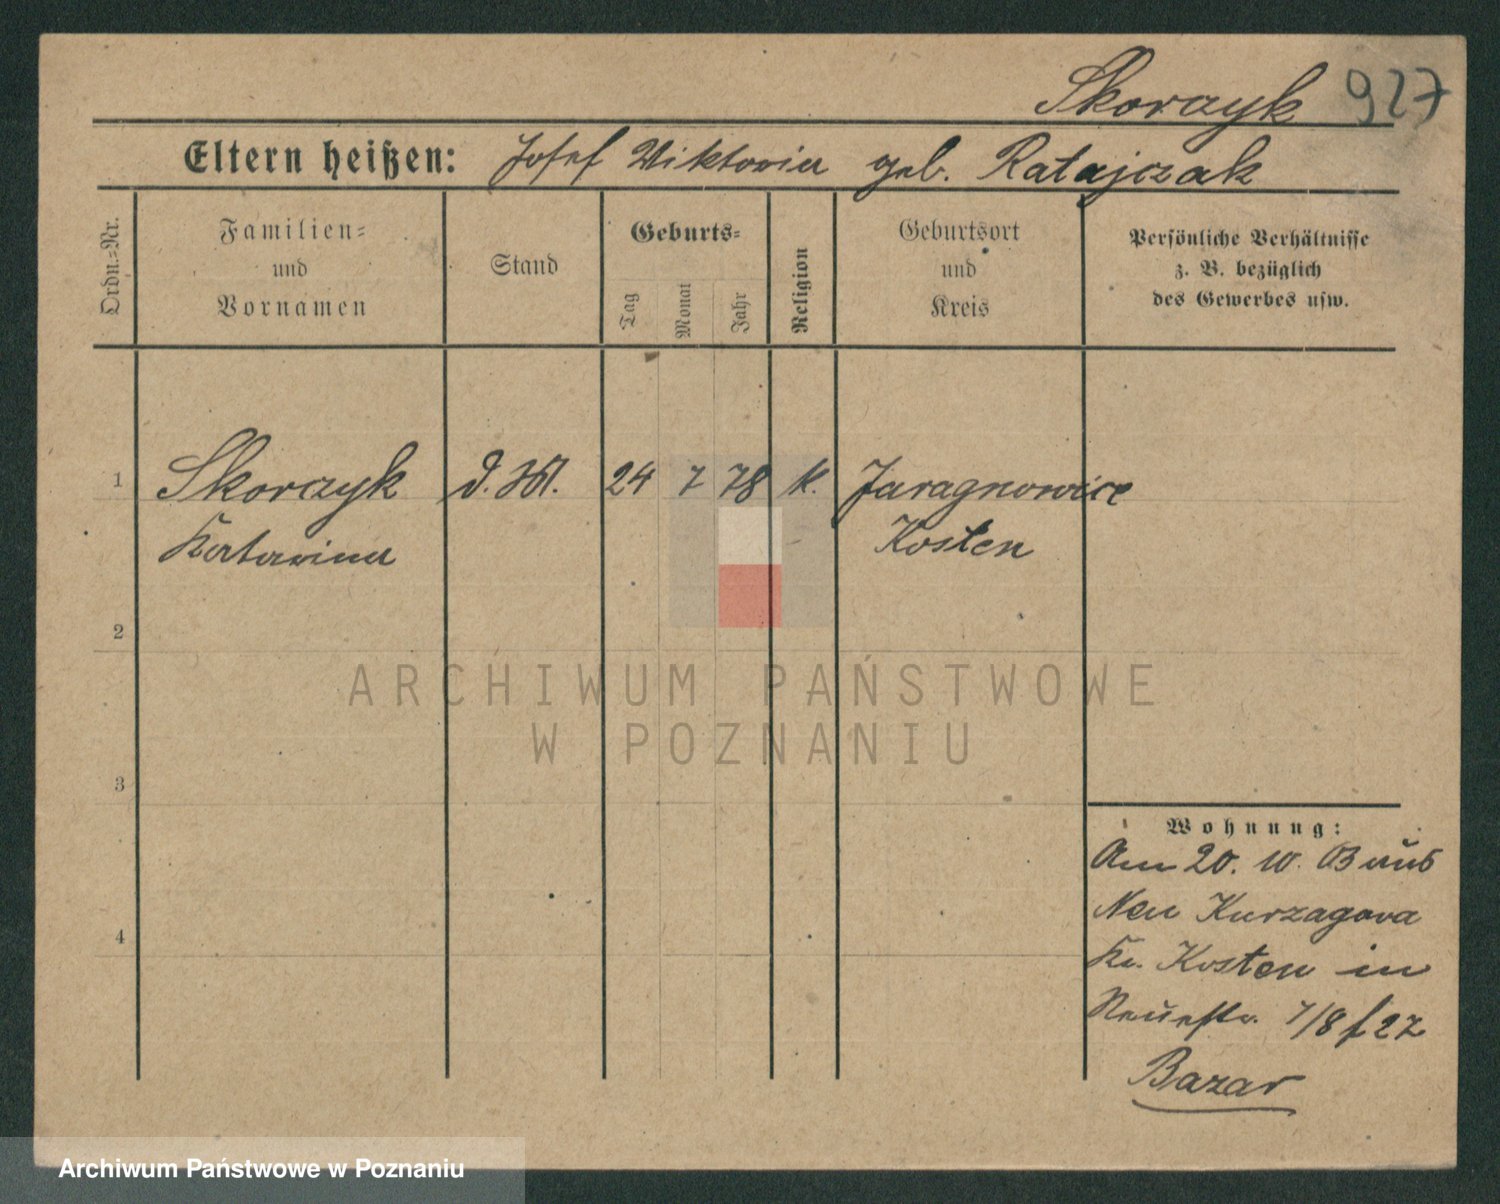 Skorczyk 927
Eltern heißen: Josef Wiktoria geb. Ratajczak
Ordn.-Nr.
Familien-
und
Vornamen
Stand
Geburts-
Tag
Monat
Jahr
Religion
Geburtsort
und
Kreis
Persönliche Verhältnisse
z. B. bezüglich
des Gewerbes usw.
1 Skorczyk d. 24 7 78 k. Jaragnowice
Katarina Kosten
2
3
4
Wohnung:
Am 20. 10. 03 aus
Neu Kurzagora
Kr. Kosten in
Neuestr. 7/8 f 27
Bazar
ARCHIWUM PAŃSTWOWE
W POZNANIU
Archiwum Państwowe w Poznaniu